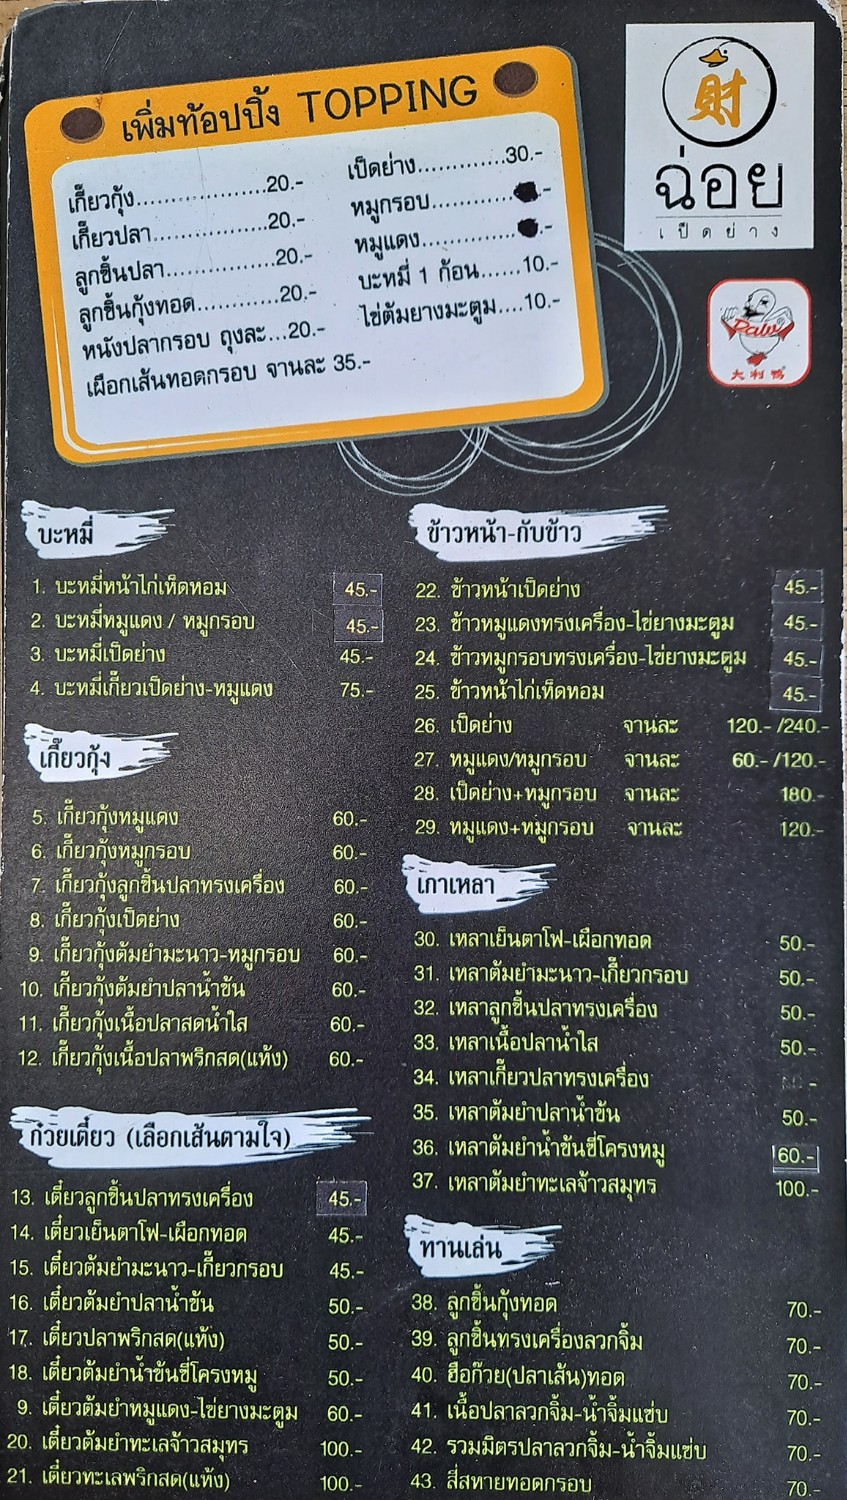 เพิ่มท้อปปิ้ง TOPPING
เกี๊ยวกุ้ง..................20.-
เกี๊ยวปลา.................20.-
ลูกชิ้นปลา................20.-
ลูกชิ้นกุ้งทอด............20.-
หนังปลากรอบ ถุงละ...20.-
เผือกเส้นทอดกรอบ จานละ 35.-
เป็ดย่าง.............30.-
หมูกรอบ............ .-
หมูแดง.............. .-
บะหมี่ 1 ก้อน......10.-
ไข่ต้มยางมะตูม....10.-
財
ฉ่อย
เป็ดย่าง
Daly®
大利鴨
บะหมี่
1. บะหมี่หน้าไก่เห็ดหอม 45.-
2. บะหมี่หมูแดง / หมูกรอบ 45.-
3. บะหมี่เป็ดย่าง 45.-
4. บะหมี่เกี๊ยวเป็ดย่าง-หมูแดง 75.-
เกี๊ยวกุ้ง
5. เกี๊ยวกุ้งหมูแดง 60.-
6. เกี๊ยวกุ้งหมูกรอบ 60.-
7. เกี๊ยวกุ้งลูกชิ้นปลาทรงเครื่อง 60.-
8. เกี๊ยวกุ้งเป็ดย่าง 60.-
9. เกี๊ยวกุ้งต้มยำมะนาว-หมูกรอบ 60.-
10. เกี๊ยวกุ้งต้มยำปลาน้ำข้น 60.-
11. เกี๊ยวกุ้งเนื้อปลาสดน้ำใส 60.-
12. เกี๊ยวกุ้งเนื้อปลาพริกสด(แห้ง) 60.-
ก๋วยเตี๋ยว (เลือกเส้นตามใจ)
13. เตี๋ยวลูกชิ้นปลาทรงเครื่อง 45.-
14. เตี๋ยวเย็นตาโฟ-เผือกทอด 45.-
15. เตี๋ยวต้มยำมะนาว-เกี๊ยวกรอบ 45.-
16. เตี๋ยวต้มยำปลาน้ำข้น 50.-
17. เตี๋ยวปลาพริกสด(แห้ง) 50.-
18. เตี๋ยวต้มยำน้ำข้นซี่โครงหมู 50.-
9. เตี๋ยวต้มยำหมูแดง-ไข่ยางมะตูม 60.-
20. เตี๋ยวต้มยำทะเลจ้าวสมุทร 100.-
21. เตี๋ยวทะเลพริกสด(แห้ง) 100.-
ข้าวหน้า-กับข้าว
22. ข้าวหน้าเป็ดย่าง 45.-
23. ข้าวหมูแดงทรงเครื่อง-ไข่ยางมะตูม 45.-
24. ข้าวหมูกรอบทรงเครื่อง-ไข่ยางมะตูม 45.-
25. ข้าวหน้าไก่เห็ดหอม 45.-
26. เป็ดย่าง จานละ 120.- /240.-
27. หมูแดง/หมูกรอบ จานละ 60.- /120.-
28. เป็ดย่าง+หมูกรอบ จานละ 180.-
29. หมูแดง+หมูกรอบ จานละ 120.-
เกาเหลา
30. เหลาเย็นตาโฟ-เผือกทอด 50.-
31. เหลาต้มยำมะนาว-เกี๊ยวกรอบ 50.-
32. เหลาลูกชิ้นปลาทรงเครื่อง 50.-
33. เหลาเนื้อปลาน้ำใส 50.-
34. เหลาเกี๊ยวปลาทรงเครื่อง
35. เหลาต้มยำปลาน้ำข้น 50.-
36. เหลาต้มยำน้ำข้นซี่โครงหมู 60.-
37. เหลาต้มยำทะเลจ้าวสมุทร 100.-
ทานเล่น
38. ลูกชิ้นกุ้งทอด 70.-
39. ลูกชิ้นทรงเครื่องลวกจิ้ม 70.-
40. ฮือก๊วย(ปลาเส้น)ทอด 70.-
41. เนื้อปลาลวกจิ้ม-น้ำจิ้มแซ่บ 70.-
42. รวมมิตรปลาลวกจิ้ม-น้ำจิ้มแซ่บ 70.-
43. สี่สหายทอดกรอบ 70.-